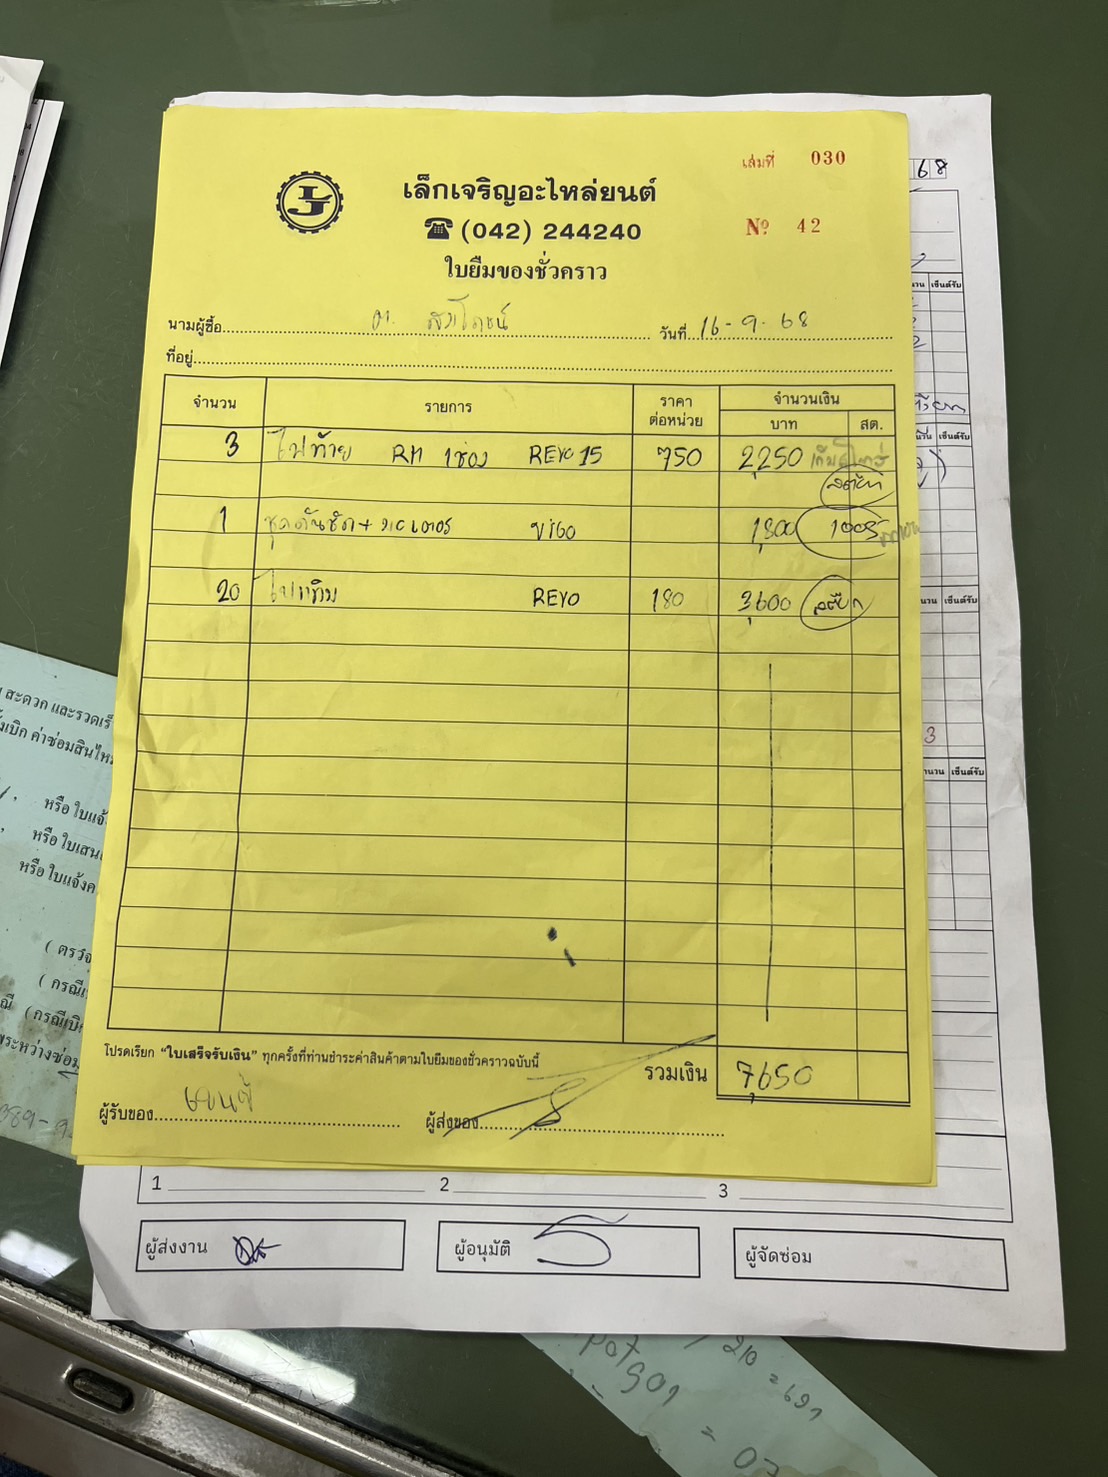 เล่มที่ 030
เล็กเจริญอะไหล่ยนต์
☎ (042) 244240
Nº 42
ใบยืมของชั่วคราว
นามผู้ซื้อ
วันที่ 16-9-68
ที่อยู่
จำนวน รายการ ราคาต่อหน่วย จำนวนเงิน
บาท สต.
3 ไฟท้าย RM 1ช่อง REVO 15 750 2,250
สต๊อก
1 VIGO 1,800
20 ไฟหรี่ม REVO 180 3,600 สต๊อก
โปรดเรียก "ใบเสร็จรับเงิน" ทุกครั้งที่ท่านชำระค่าสินค้าตามใบยืมของชั่วคราวฉบับนี้
รวมเงิน 7,650
ผู้รับของ
ผู้ส่งของ
1 2 3
ผู้ส่งงาน
ผู้อนุมัติ
ผู้จัดซ่อม
68
เซ็นต์รับ
เซ็นต์รับ
นวน เซ็นต์รับ
3
นวน เซ็นต์รับ
สะดวก และรวดเร็
เบิก ค่าซ่อมสินไหม
หรือ ใบแจ้
หรือ ใบเสน
หรือ ใบแจ้งค
( ตรวจ
( กรณี
(กรณีเบิก
ระหว่างซ่อม
210
= 691